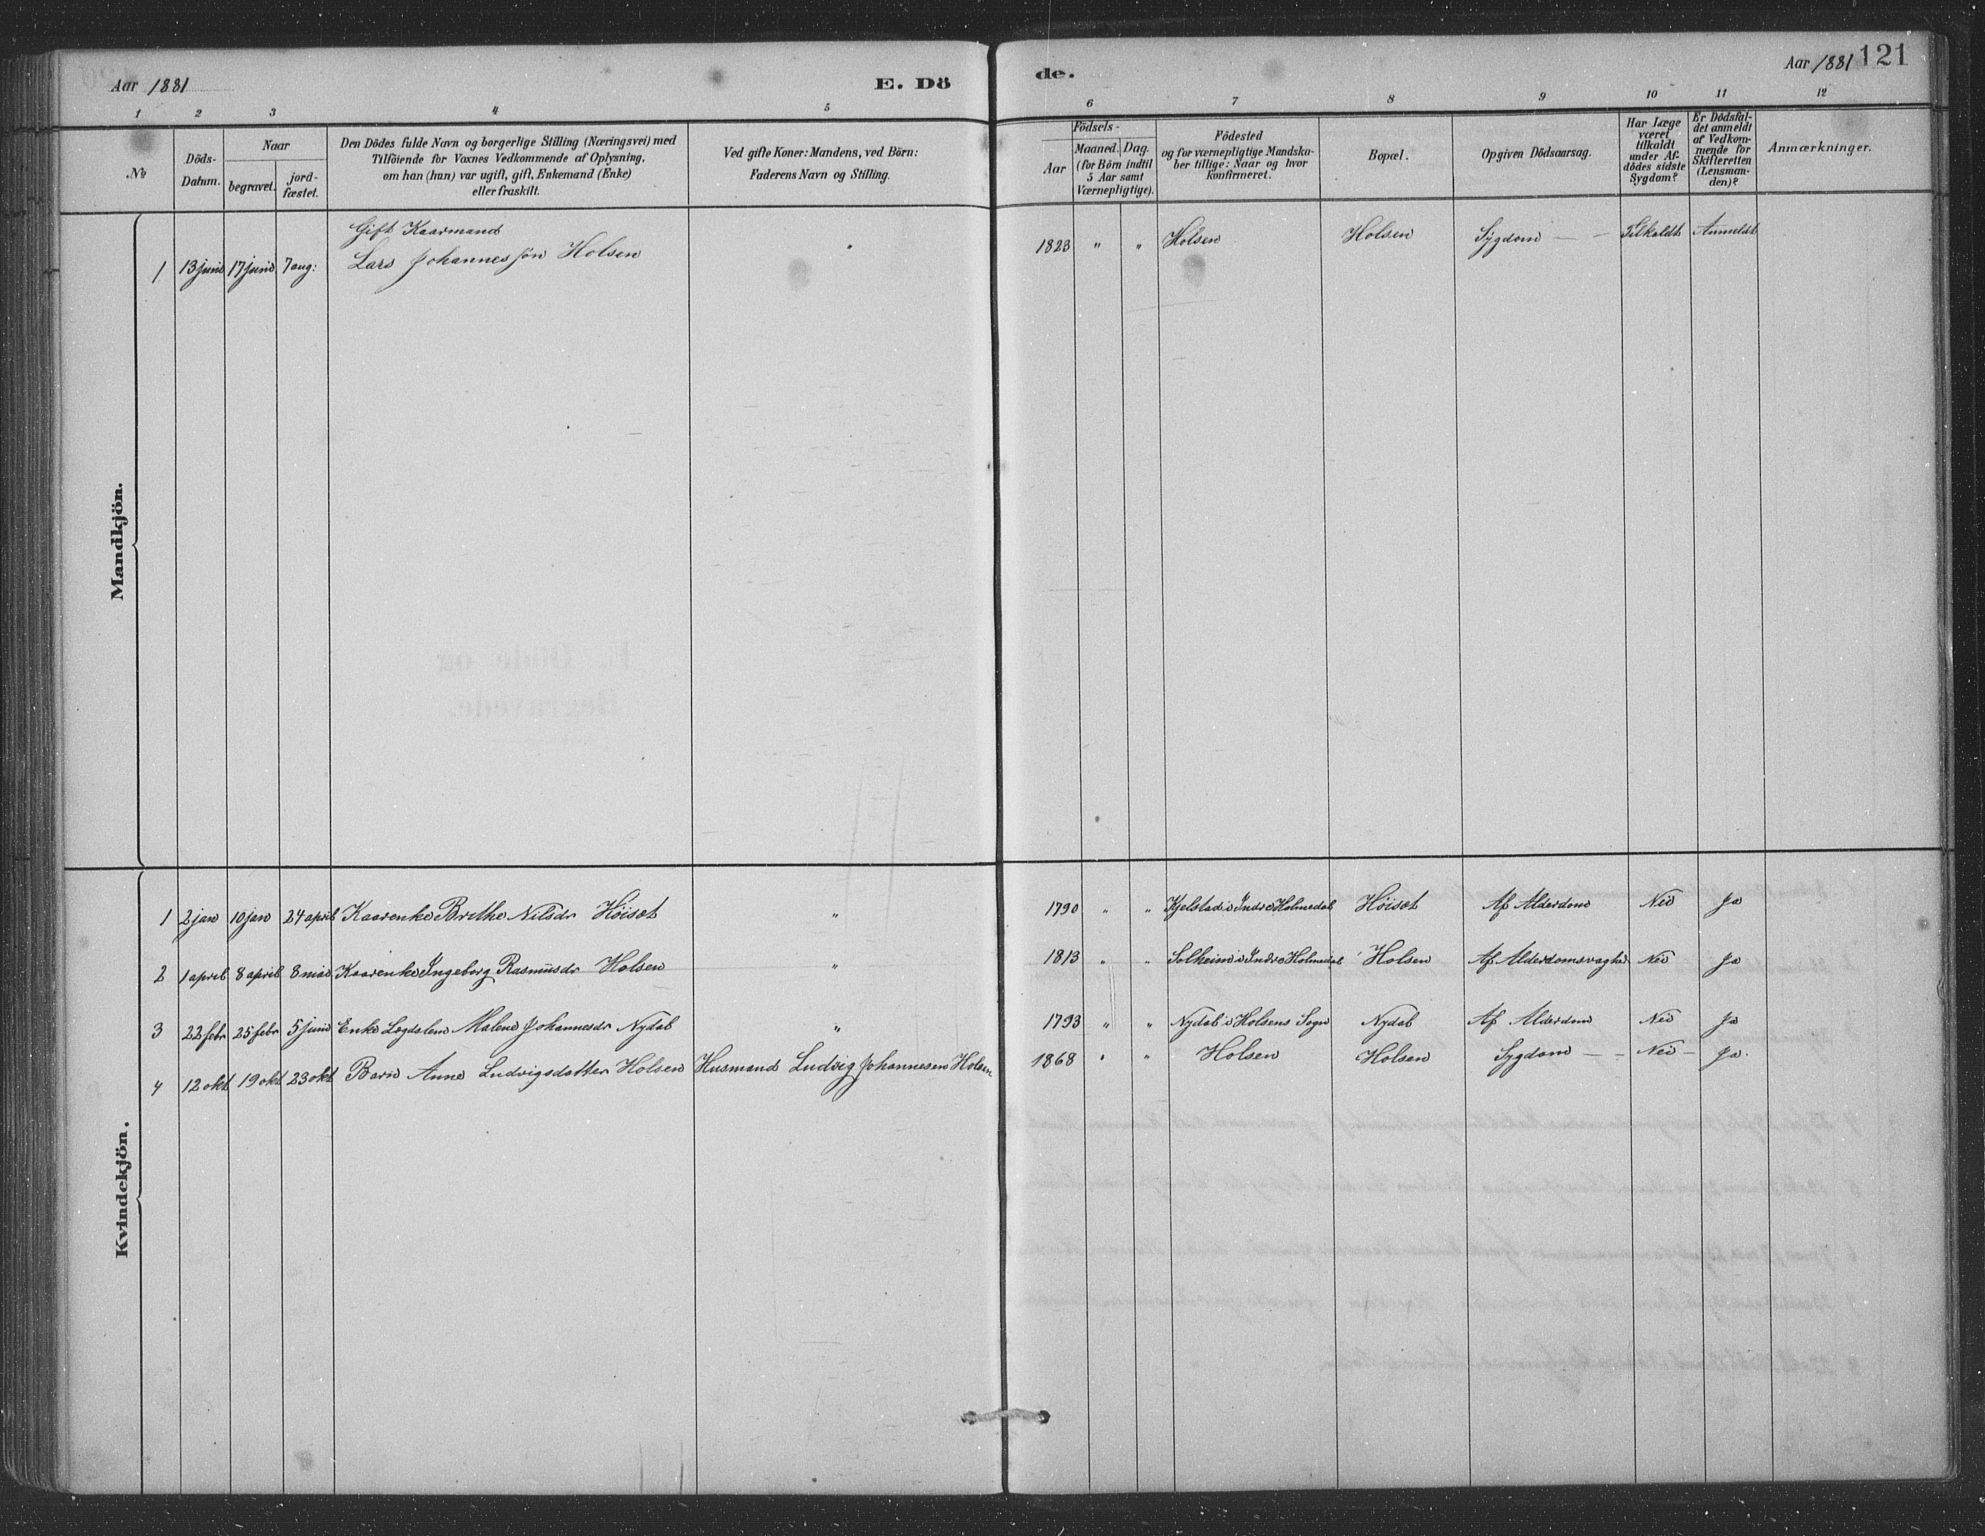 Aar 1881
E. Dö
de.
Aar 1881
121
1 2 3 4 5 6 7 8 9 10 11 12
No
Döds-Datum.
Naar
begravet.
jord-fæstet.
Den Dödes fulde Navn og borgerlige Stilling (Næringsvei) med
Tilföiende for Voxnes Vedkommende af Oplysning,
om han (hun) var ugift, gift, Enkemand (Enke)
eller fraskilt.
Ved gifte Koner: Mandens, ved Börn:
Faderens Navn og Stilling.
Födsels-
Aar
Maaned. Dag.
(for Börn indtil
5 Aar samt
Værnepligtige).
Födested
og for værnepligtige Mandska-
ber tillige: Naar og hvor
konfirmeret.
Bopæl.
Opgiven Dödsaarsag.
Har Læge
været
tilkaldt
under Af-
dödes sidste
Sygdom?
Er Dödsfal-
det anmeldt
af Vedkom-
mende for
Skifteretten
(Lensman-
den)?
Anmærkninger.
Mandkjön.
Gift Kaarmand
1 13 juni 17 juni 7 aug: Lars Johannessøn Holsen " 1823 " " Holsen Holsen Sygdom — — Tilkaldt Anmeldt
Kvindekjön.
1 2 jan 10 jan 24 april Kaarenke Brithe Nilsdr Höisæt " 1790 " " Kjelstad i Indre Holmedal Höisæt Af Alderdom Nei Ja
2 1 april 8 april 8 mai Kaarenke Ingeborg Rasmusdr Holsen " 1813 " " Solheim i Indre Holmedal Holsen Af Alderdomsvaghed Nei Ja
3 22 febr 25 febr 5 juni Enke Lægdslem Malene Johannesdr Nydal " 1793 " " Nydal i Holsens Sogn Nydal Af Alderdom Nei Ja
4 12 okt 19 okt 23 okt Barn Anne Ludvigsdatter Holsen Husmand Ludvig Johannesen Holsen 1868 " " Holsen Holsen Sygdom — - Nei - Ja.